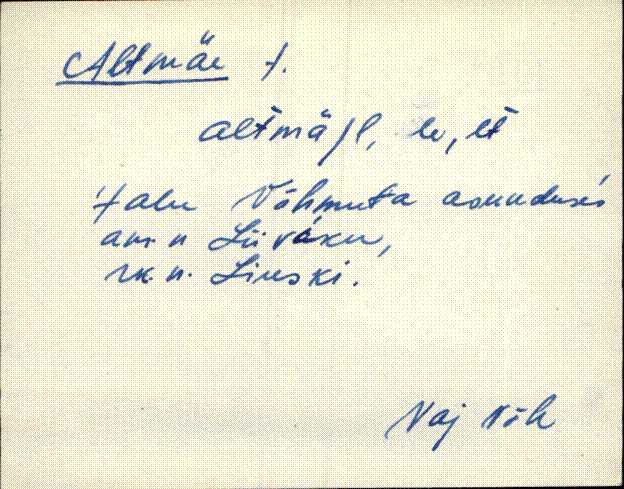 Altmäe t.
altmä/l, le, lt
'talu Võhmuta asunduses'
am. n Liiváku,
rk. n. Linski.
Vaj Võh